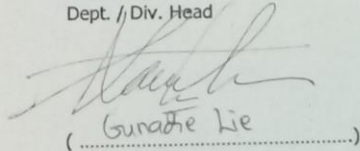 Dept. / Div. Head
Gunadhe Lie
(..........................................................)